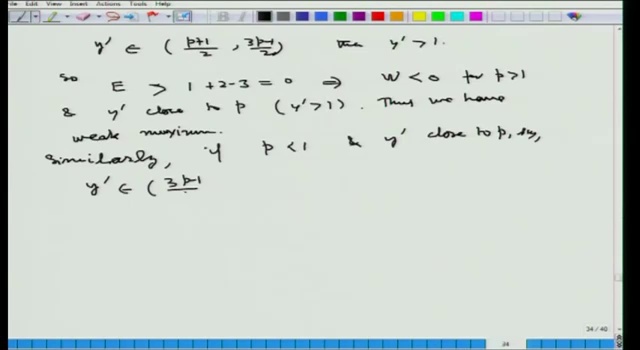 File Edit View Insert Actions Tools Help
y' ∈ ( p+1/2 , 3p-1/2 ) then y' > 1.
So E > 1 + 2 - 3 = 0 ⇒ W < 0 for p > 1
& y' close to p ( y' > 1 ) . Thus we have
weak maximum.
Similarly, if p < 1 & y' close to p, say,
y' ∈ ( 3p-1
34 / 40
34